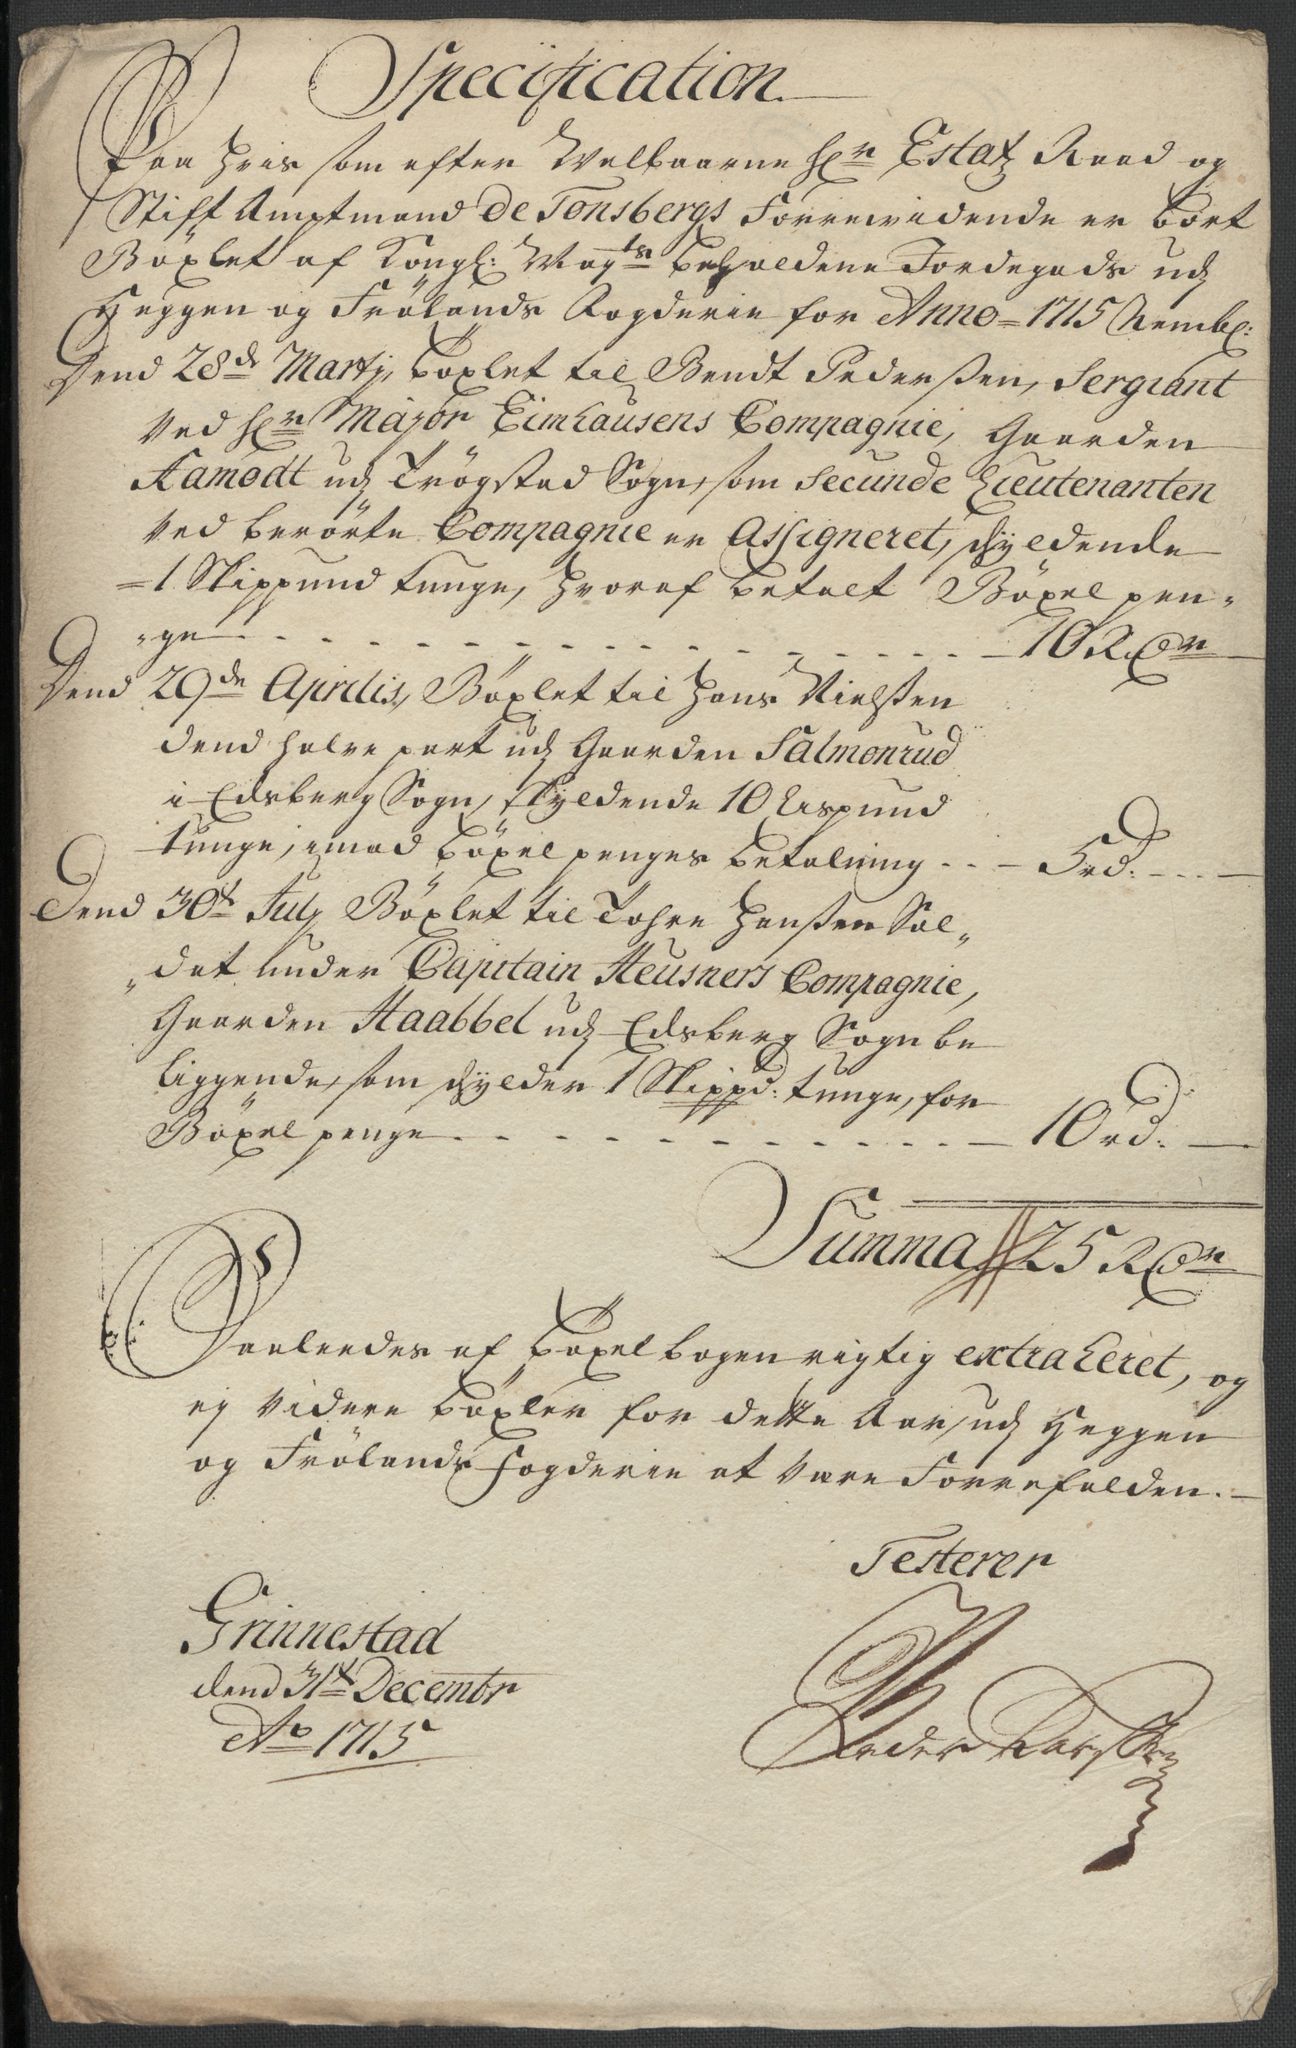 Specification
Paa hvis som efter Welbaarne Hr Estatz Raad og
Stift Amptmand de Tonsbergs Forrewidende er bort
Böxlet af Kongl: Mayts beholdene Jordegods udj
Heggen og Frölands Fogderie for Anno 1715 Nembl:
Dend 28de Martj, böxlet til Bendt Pedersen, Sergiant
ved Hr Major Eimhausens Compagnie, Gaarden
Ramodt udj Trögstad Sogn, som Secunde Lieutenanten
ved berörte Compagnie er Assigneret, skyldende
=1 Skippund tunge, hvoraf betalt Böxel pen„
„ge - - - 10 Rdr
Dend 29de Aprilis, Böxlet til Hans Nielsen
dend halve part udj Gaarden Salmonrud
i Edsberg Sogn, skyldende 10 Lispund
tunge, imod böxel penges betalning - - - 5 rd: - - -
Dend 30t Julj Böxlet til Tohre Hansen Sol„
„dat under Capitain Heusners Compagnie,
Gaarden Haabbel udj Edsberg Sogn be
liggende, som skylder 1 Skippd: tunge, for
Böxel penge - - - 10 rd:
Summa 25 Rdr
Saaledes af böxel bogen rigtig extraheret, og
ej videre böxler for dette Aar, udj Heggen
og Frölands fogderie at være Forrefalden.
Testerer
Grinnestad
dend 31t Decembr
Ao 1715
Peder